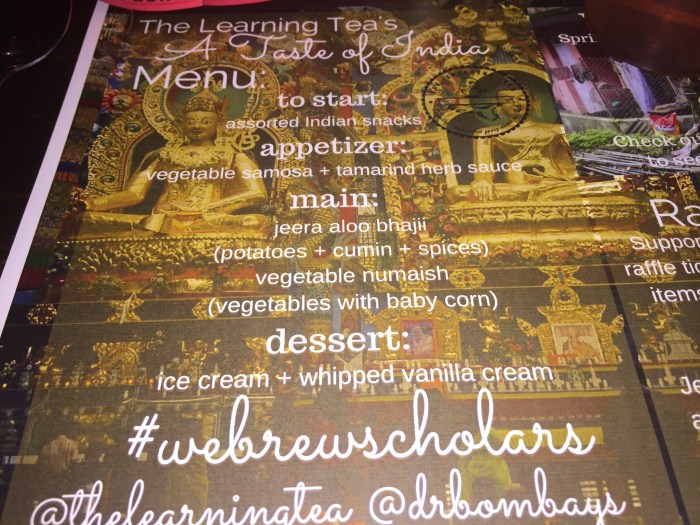 The Learning Tea's
A Taste of India
Menu:
to start:
assorted Indian snacks
appetizer:
vegetable samosa + tamarind herb sauce
main:
jeera aloo bhajii
(potatoes + cumin + spices)
vegetable numaish
(vegetables with baby corn)
dessert:
ice cream + whipped vanilla cream
#webrewscholars
@thelearningtea @drbombays
Spri
Check ou
to se
Ra
Suppo
raffle tic
items
Je
a